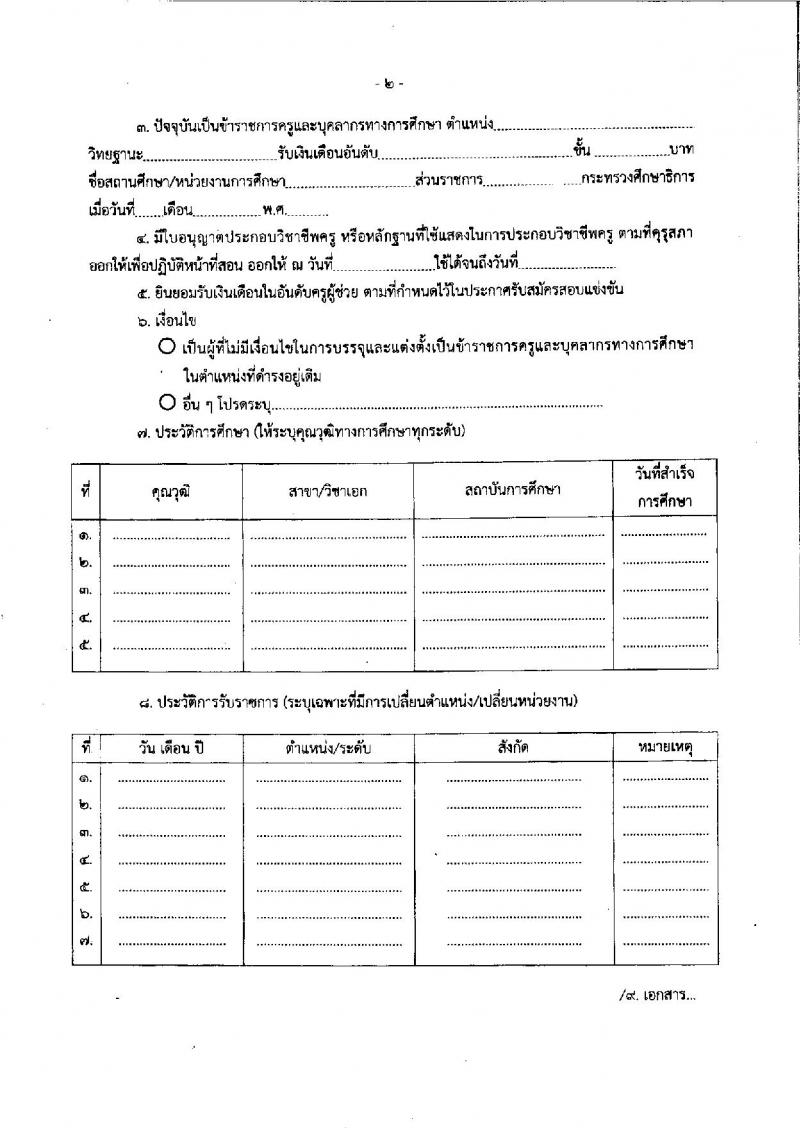 - ๒ -
๓. ปัจจุบันเป็นข้าราชการครูและบุคลากรทางการศึกษา ตำแหน่ง..............................
วิทยฐานะ..............................รับเงินเดือนอันดับ..............................ขั้น ....................บาท
ชื่อสถานศึกษา/หน่วยงานการศึกษา..............................ส่วนราชการ.................... .....กระทรวงศึกษาธิการ
เมื่อวันที่.......เดือน.................พ.ศ...........
๔. มีใบอนุญาตประกอบวิชาชีพครู หรือหลักฐานที่ใช้แสดงในการประกอบวิชาชีพครู ตามที่คุรุสภา
ออกให้เพื่อปฏิบัติหน้าที่สอน ออกให้ ณ วันที่..........................ใช้ได้จนถึงวันที่.........................
๕. ยินยอมรับเงินเดือนในอันดับครูผู้ช่วย ตามที่กำหนดไว้ในประกาศรับสมัครสอบแข่งขัน
๖. เงื่อนไข
เป็นผู้ที่ไม่มีเงื่อนไขในการบรรจุและแต่งตั้งเป็นข้าราชการครูและบุคลากรทางการศึกษา
ในตำแหน่งที่ดำรงอยู่เดิม
อื่น ๆ โปรดระบุ............................................................
๗. ประวัติการศึกษา (ให้ระบุคุณวุฒิทางการศึกษาทุกระดับ)
ที่ คุณวุฒิ สาขา/วิชาเอก สถาบันการศึกษา วันที่สำเร็จ
การศึกษา
๑.
๒.
๓.
๔.
๕.
๘. ประวัติการรับราชการ (ระบุเฉพาะที่มีการเปลี่ยนตำแหน่ง/เปลี่ยนหน่วยงาน)
ที่ วัน เดือน ปี ตำแหน่ง/ระดับ สังกัด หมายเหตุ
๑.
๒.
๓.
๔.
๕.
๖.
๗.
/๙. เอกสาร...